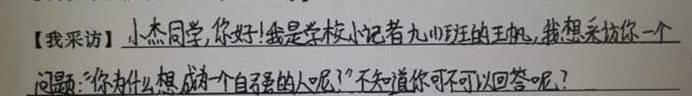 【我采访】小杰同学,你好!我是学校小记者九(1)班的王帆,我想采访你一个
问题:“你为什么想成为一个自强的人呢?”不知道你可不可以回答呢?